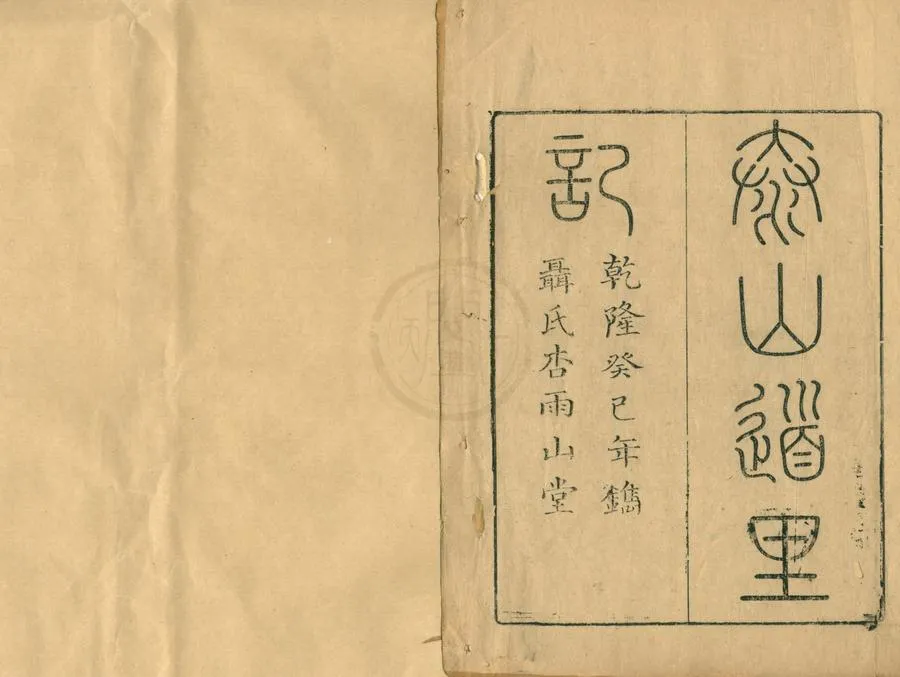 泰山道里
記
乾隆癸巳年鐫
聶氏杏雨山堂